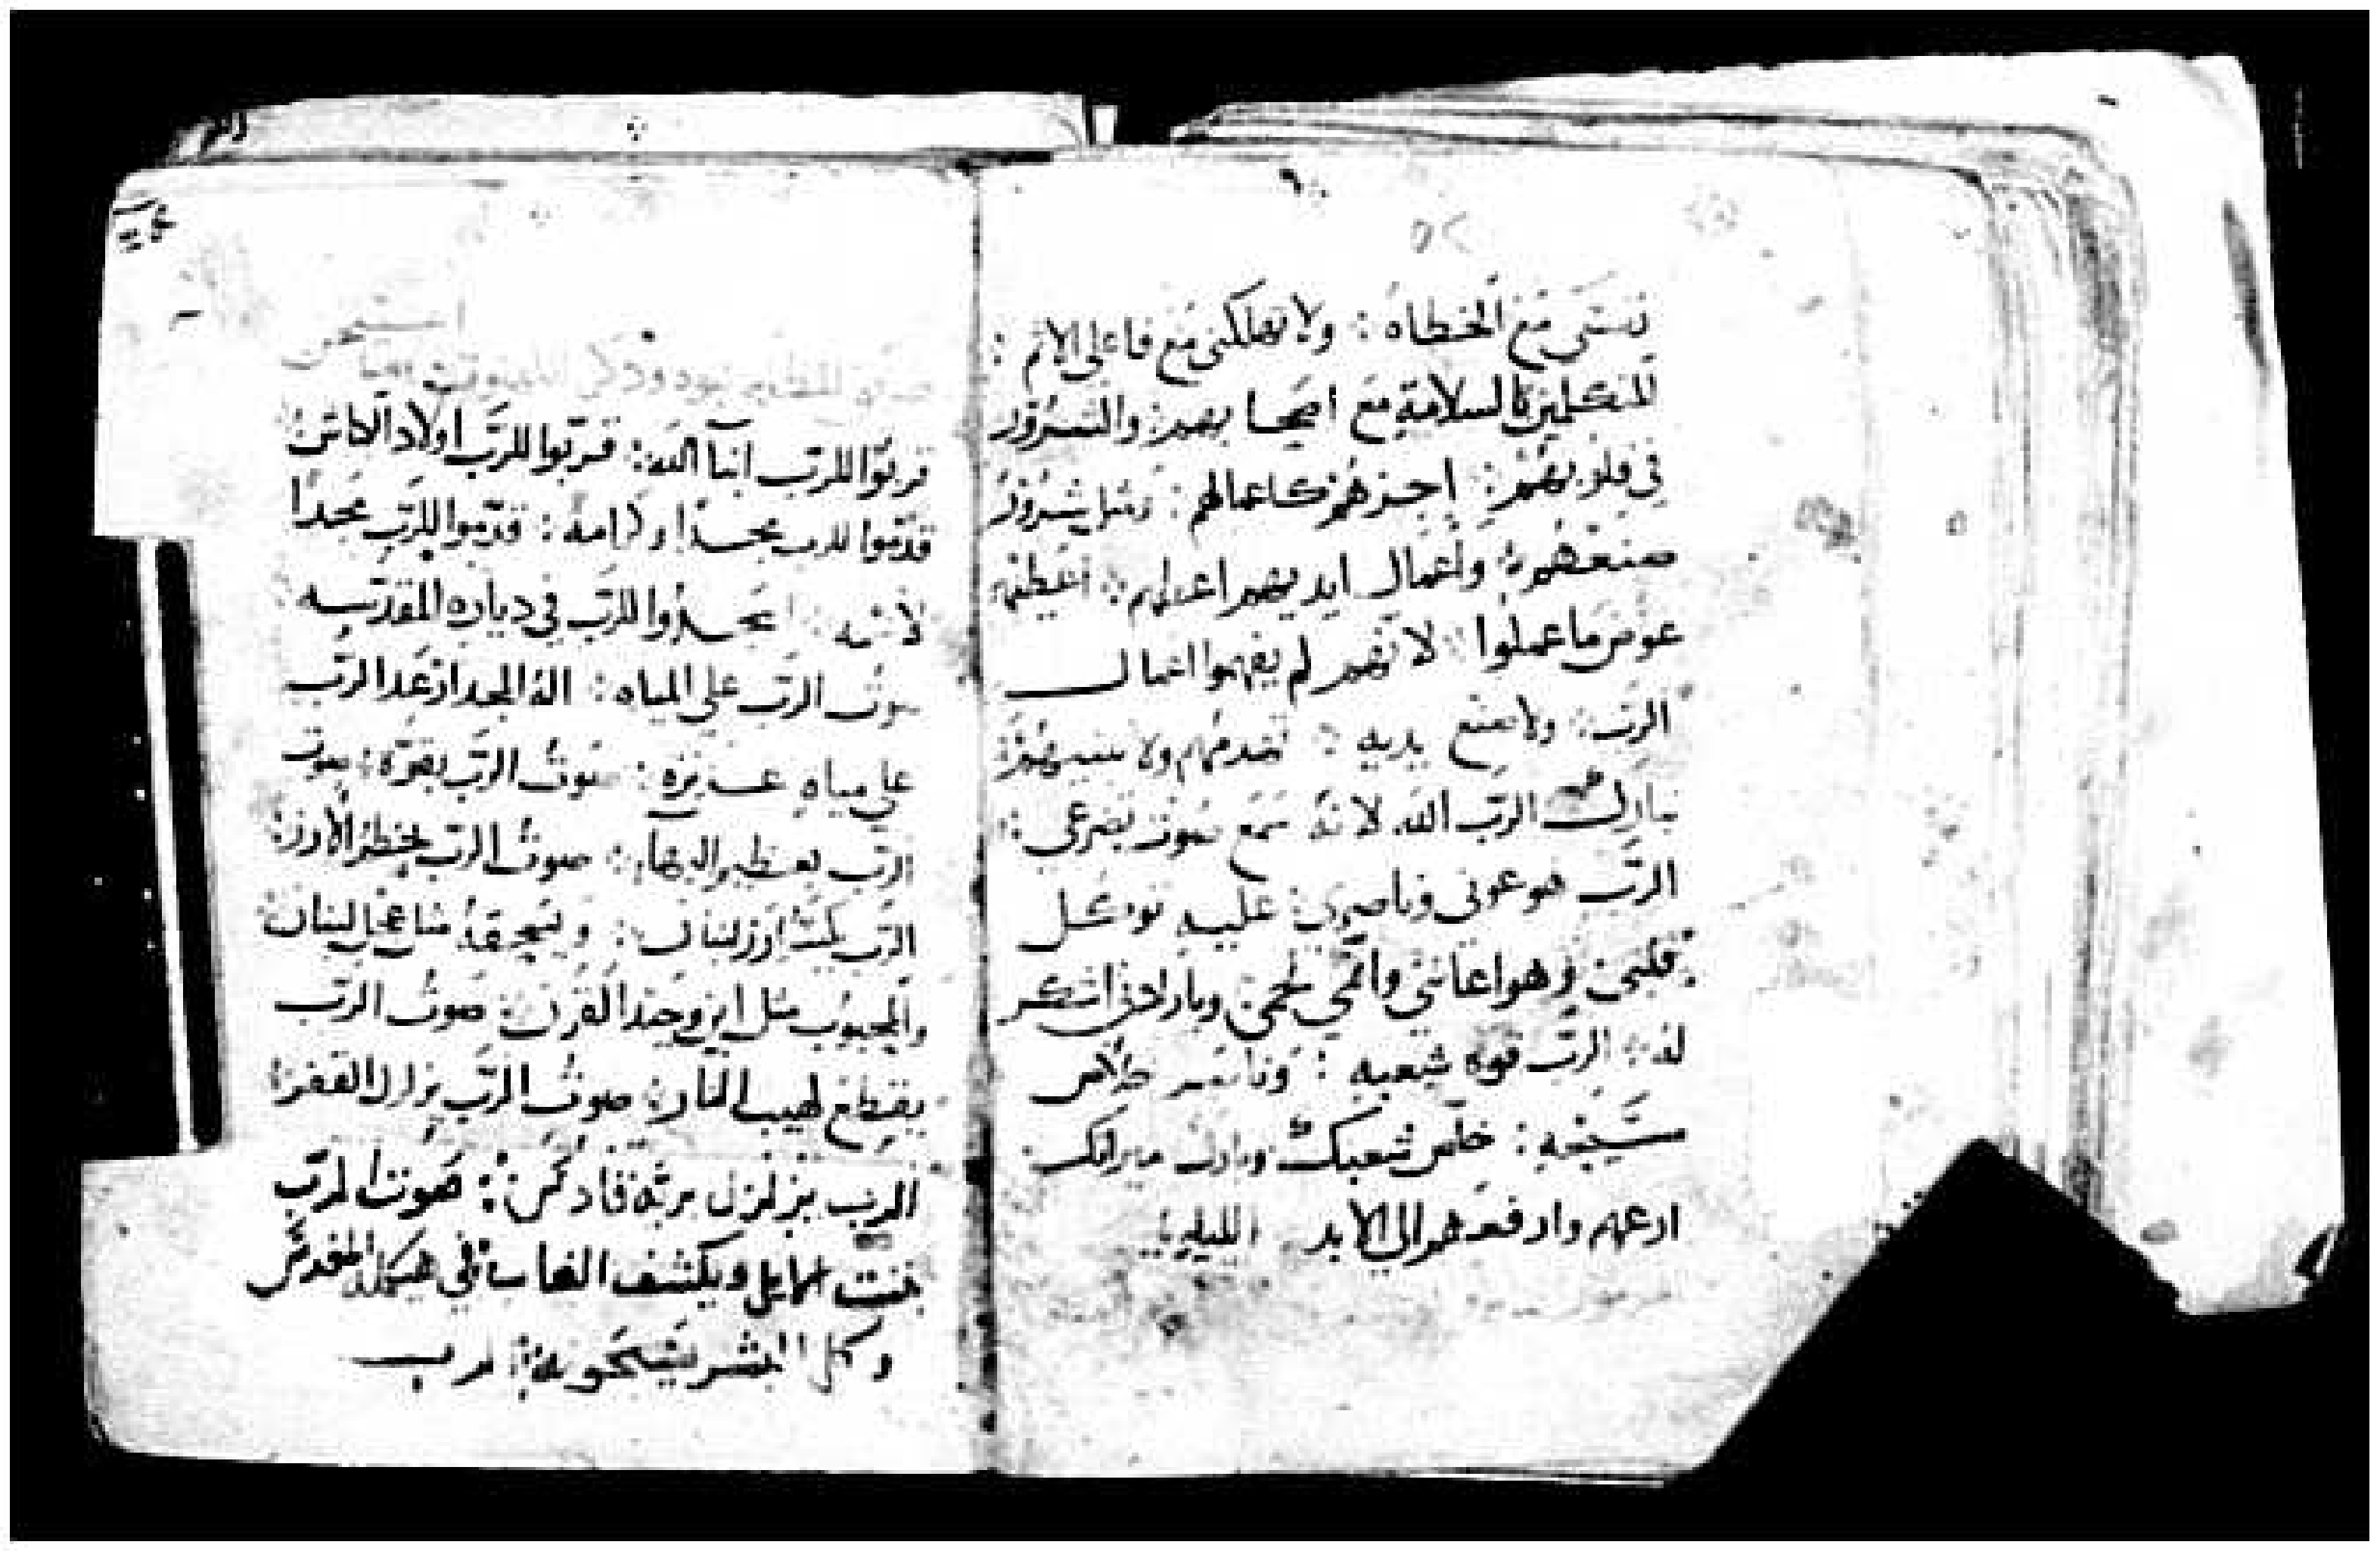 نفسى مع الخطاه : ولا تهلكنى مع فاعلى الاثم :
المتكلمين بالسلامة مع اصحابهم : والشرور
فى قلوبهم : اجزهم كاعمالهم : ومثل شرور
صنعهم : واعمال ايديهم اعطيهم : اعطهم
عوض ما عملوا : لانهم لم يفهموا اعمال
الرب : ولا صنع يديه : تهدمهم ولا تبنيهم :
تبارك الرب الله لانه سمع صوت تضرعى :
الرب هو عونى وناصرى : عليه توكل
قلبى : وهو اعاننى لحمى وبارادتى اشكر
له : الرب قوه شعبه : وناصر خلاص
مسيحه : خلص شعبك وبارك ميراثك :
ارعهم وارفعهم الى الابد الليلويا :
قربوا للرب ابنآ الله : قربوا للرب اولاد الكباش :
قدموا للرب مجدًا وكرامة : قدموا للرب مجدًا
لاسمه : اسجدوا للرب فى دياره المقدسه :
صوت الرب على المياه : اله المجد ارعد الرب
على مياه غزيزه : صوت الرب بقوة : صوت
الرب بعظيم البهآء : صوت الرب يحطم الارز :
الرب يكسر ارز لبنان : ويسحقه مثل عجل لبنان :
والمحبوب مثل ابن وحيد القرن : صوت الرب
يقطع لهيب النار : صوت الرب يزلزل القفر :
الرب يزلزل برية قادس : صوت الرب
ويكشف الغاب : فى هيكله المقدس
وكل البشر يسبحونه : الرب